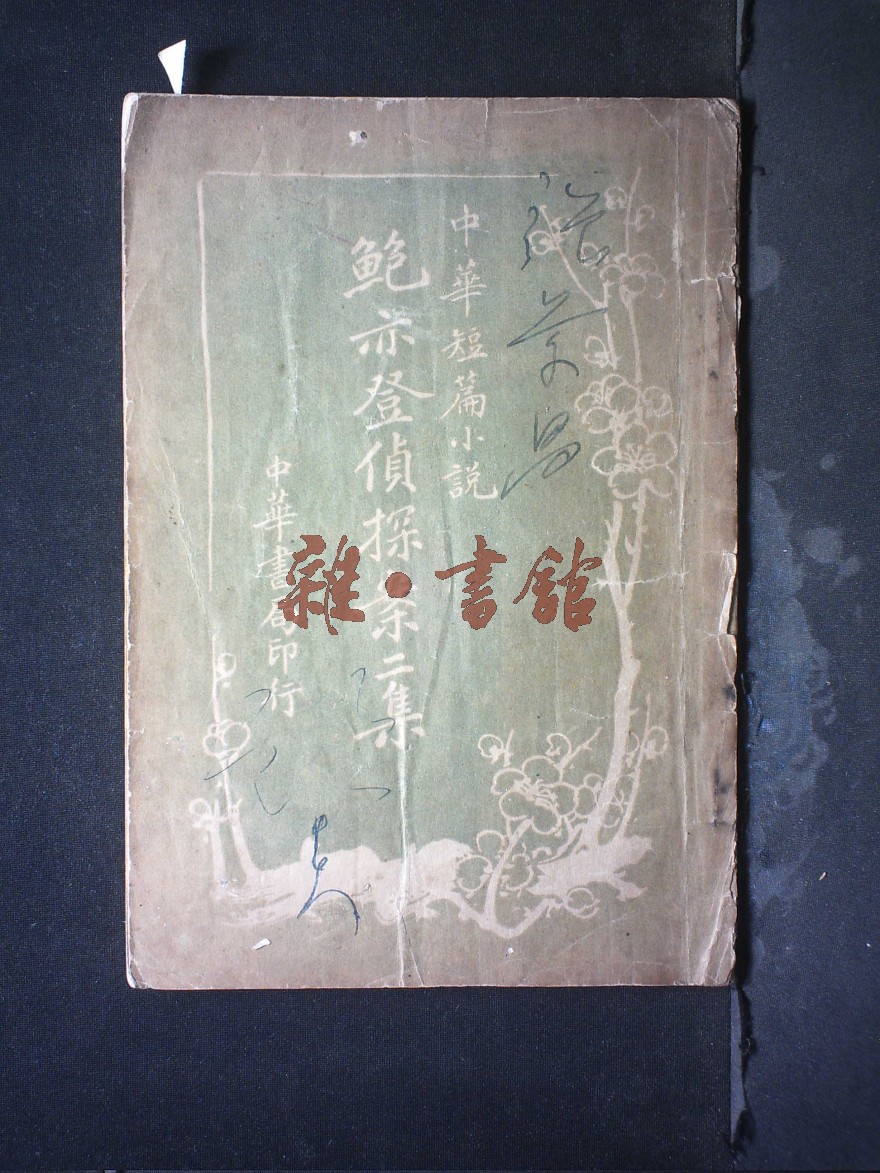 中華短篇小説
鮑亦登偵探案二集
中華書局印行
雜·書舘